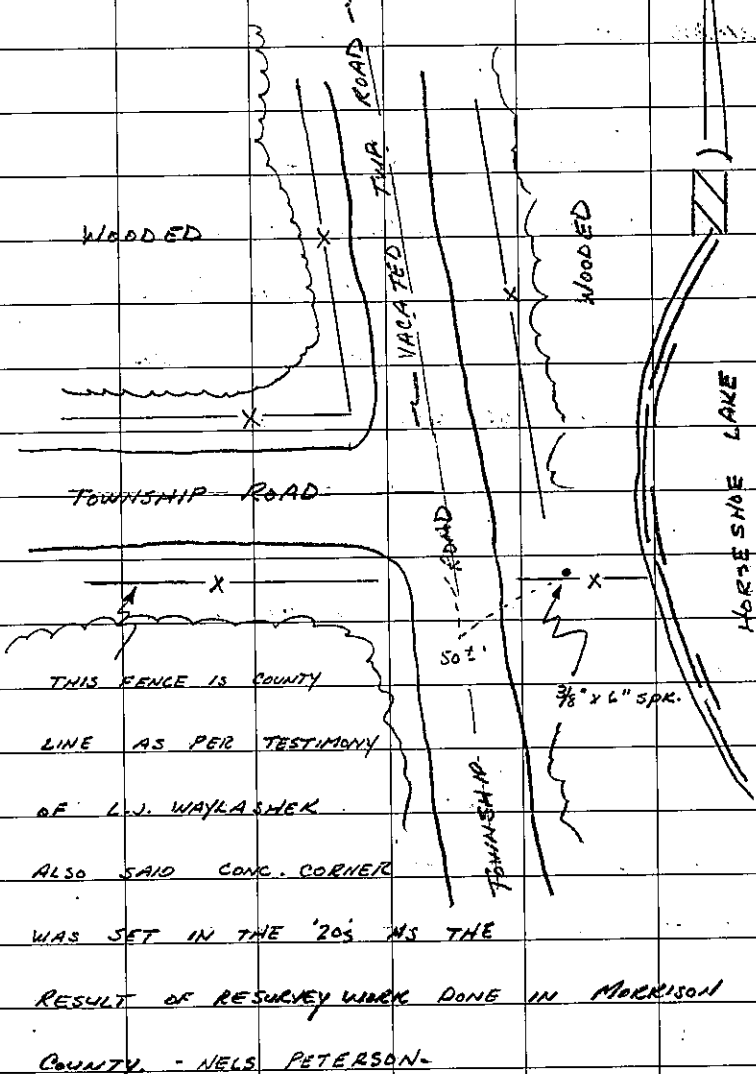 VACATED TWP. ROAD -
WOODED
WOODED
HORSESHOE LAKE
TOWNSHIP ROAD
TOWNSHIP - ROAD
50±'
3/8" x 6" SPK.
THIS FENCE IS COUNTY
LINE AS PER TESTIMONY
OF L.J. WAYLASHEK
ALSO SAID CONC. CORNER
WAS SET IN THE '20s AS THE
RESULT OF RESURVEY WORK DONE IN MORRISON
COUNTY. - NELS PETERSON-